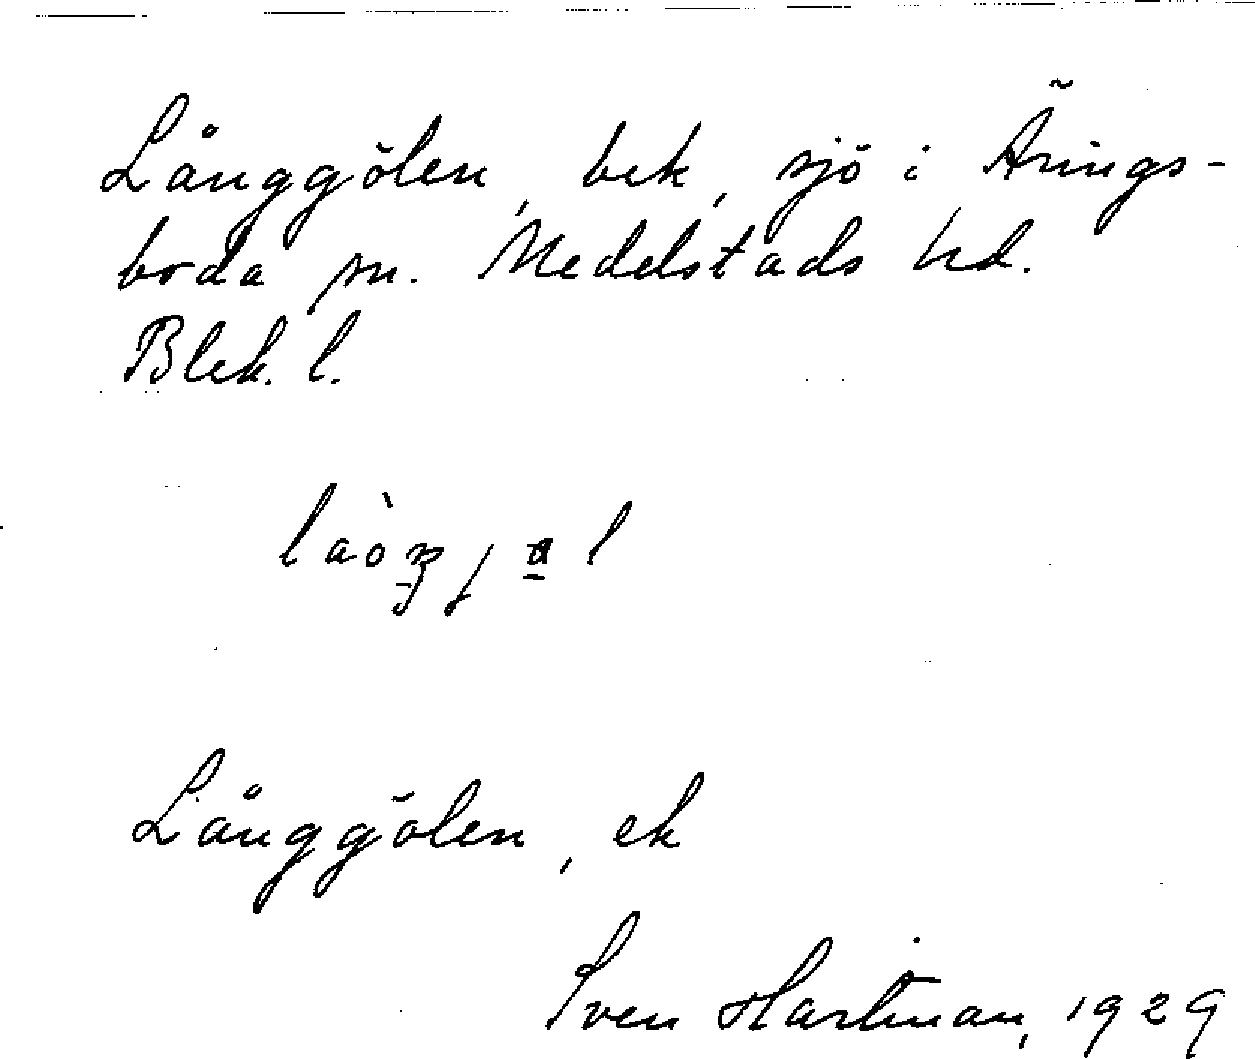 Långgölen, bek, sjö i Ärings-
boda sn. Medelstads hd.
Blek. l.
Långgölen, ek
Sven Hartman, 1929